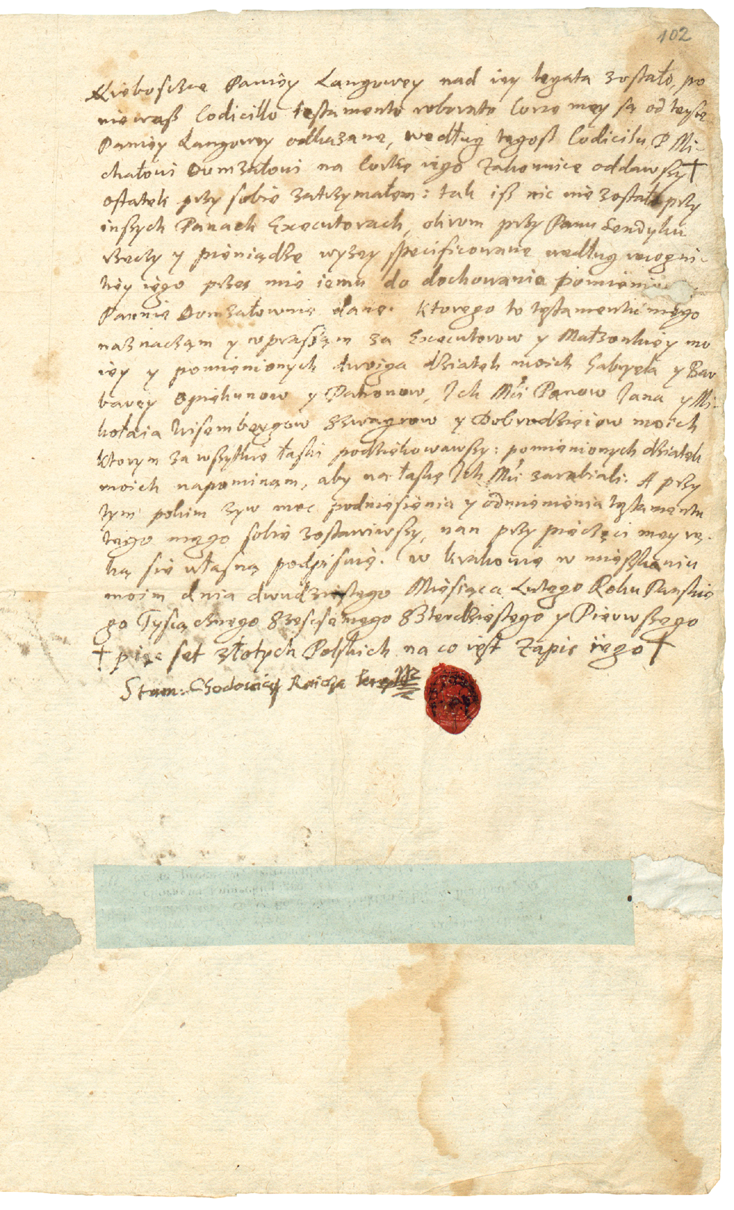 102
Nieboszce Paniey Langowey nad iey legata zostało, po
nieważ Codicillo testamento roborato Corce mey są od teyże
Paniey Langowey odkazane, według tegosz Codicilu P Mi-
chałowi Domżałowi na Corkę iego Zakonnicę oddawszy †
ostatek przy sobie zatrzymałem: tak isz nic nie zostało przy
inszych Panach Executorach, okrom przy Panu Sendyku
rzeczy y pieniądze wyżey specificowane według recogni-
tiey iego przez mię iemu do dochowania pomienionej
Pannie Domżałownie dane. Ktorego to testamentu mego
naznaczam y upraszam za Executorow y Małżonkiey mo
iey y pomienionych dwoiga dziatek moich Gabryela y Bar
barey Opiekunow y Patronow, Ich Mći Panow Jana y Mi-
kołaia Wisembergow Szwagrow y Dobrodzieiow moich
ktorym za wszytkie łaski podziękowawszy: pomienionych dziatek
moich napominam, aby na łaskę Ich Mći zarabiali. A przy
tym pokim żyw moc podniesienia y odmienienia testamentu
tego mego sobie zostawiwszy, nań przy pieczęci mey rę-
ką się własną podpisuię. w Krakowie w mieszkaniu
moim dnia dwudziestego Miesiąca Lutego Roku Pańskie
go Tysiącznego Szescsetnego Szterdziestego y Pierwszego
† pięc set złotych Polskich na co iest Zapis iego †
Stan: Chodowicz Raicza